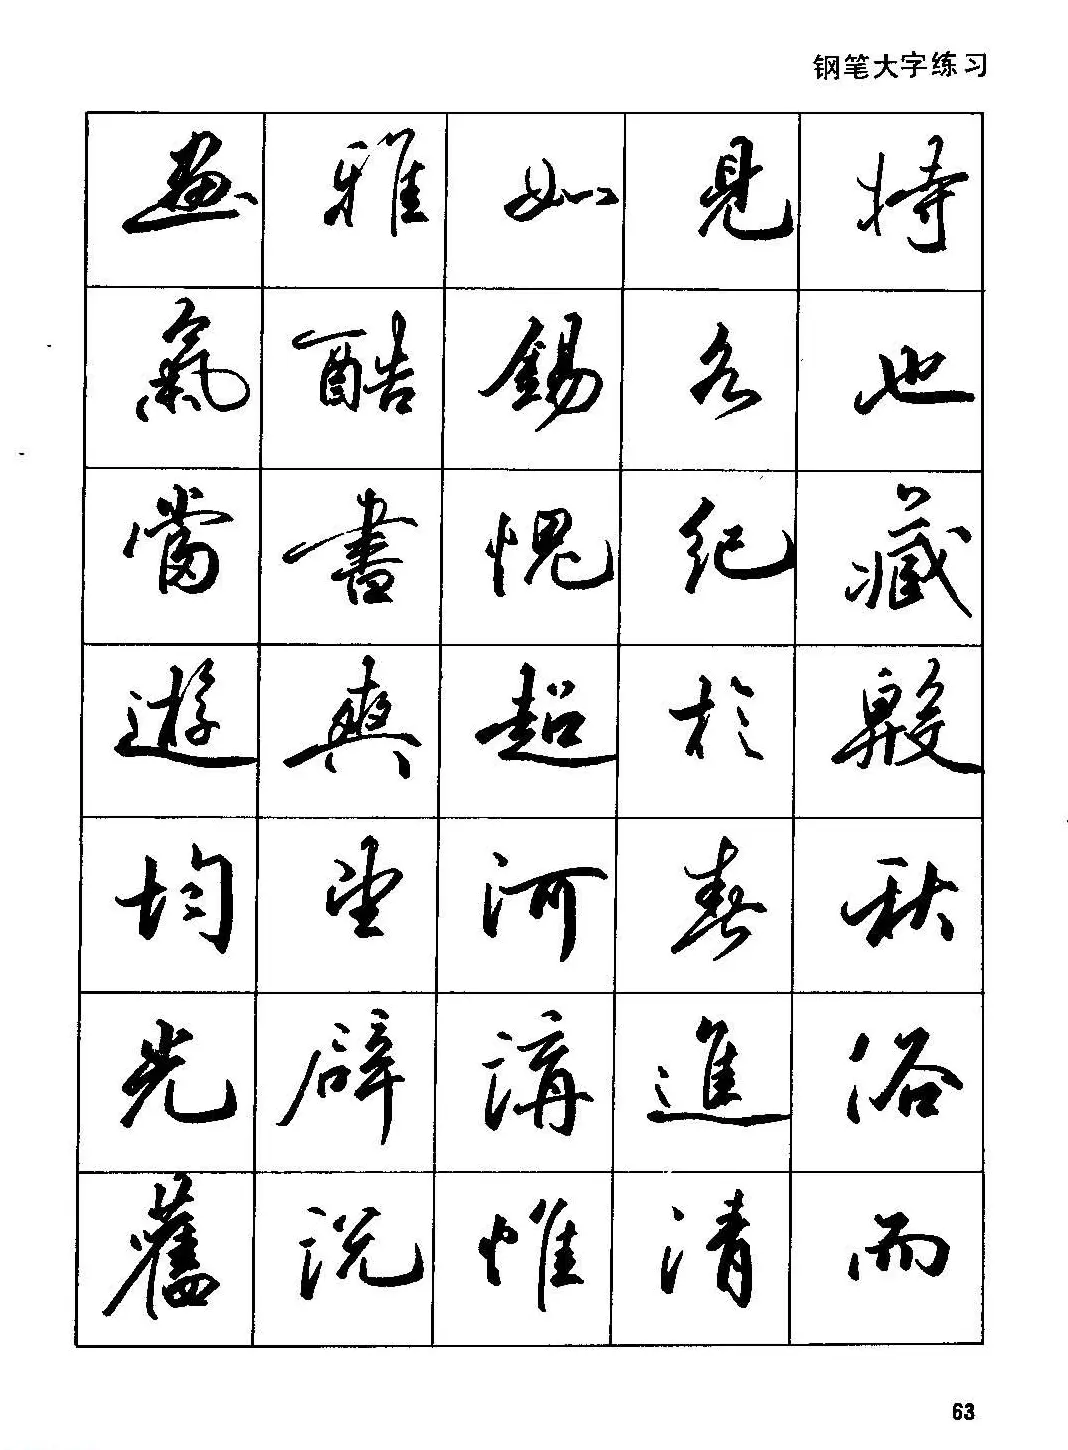 钢笔大字练习
雅 如 見 持
氣 酷 錫 各 也
當 書 愧 紀 藏
遊 爽 超 於 殿
均 望 河 春 秋
光 辟 溝 進 浴
舊 説 惟 清 而
63